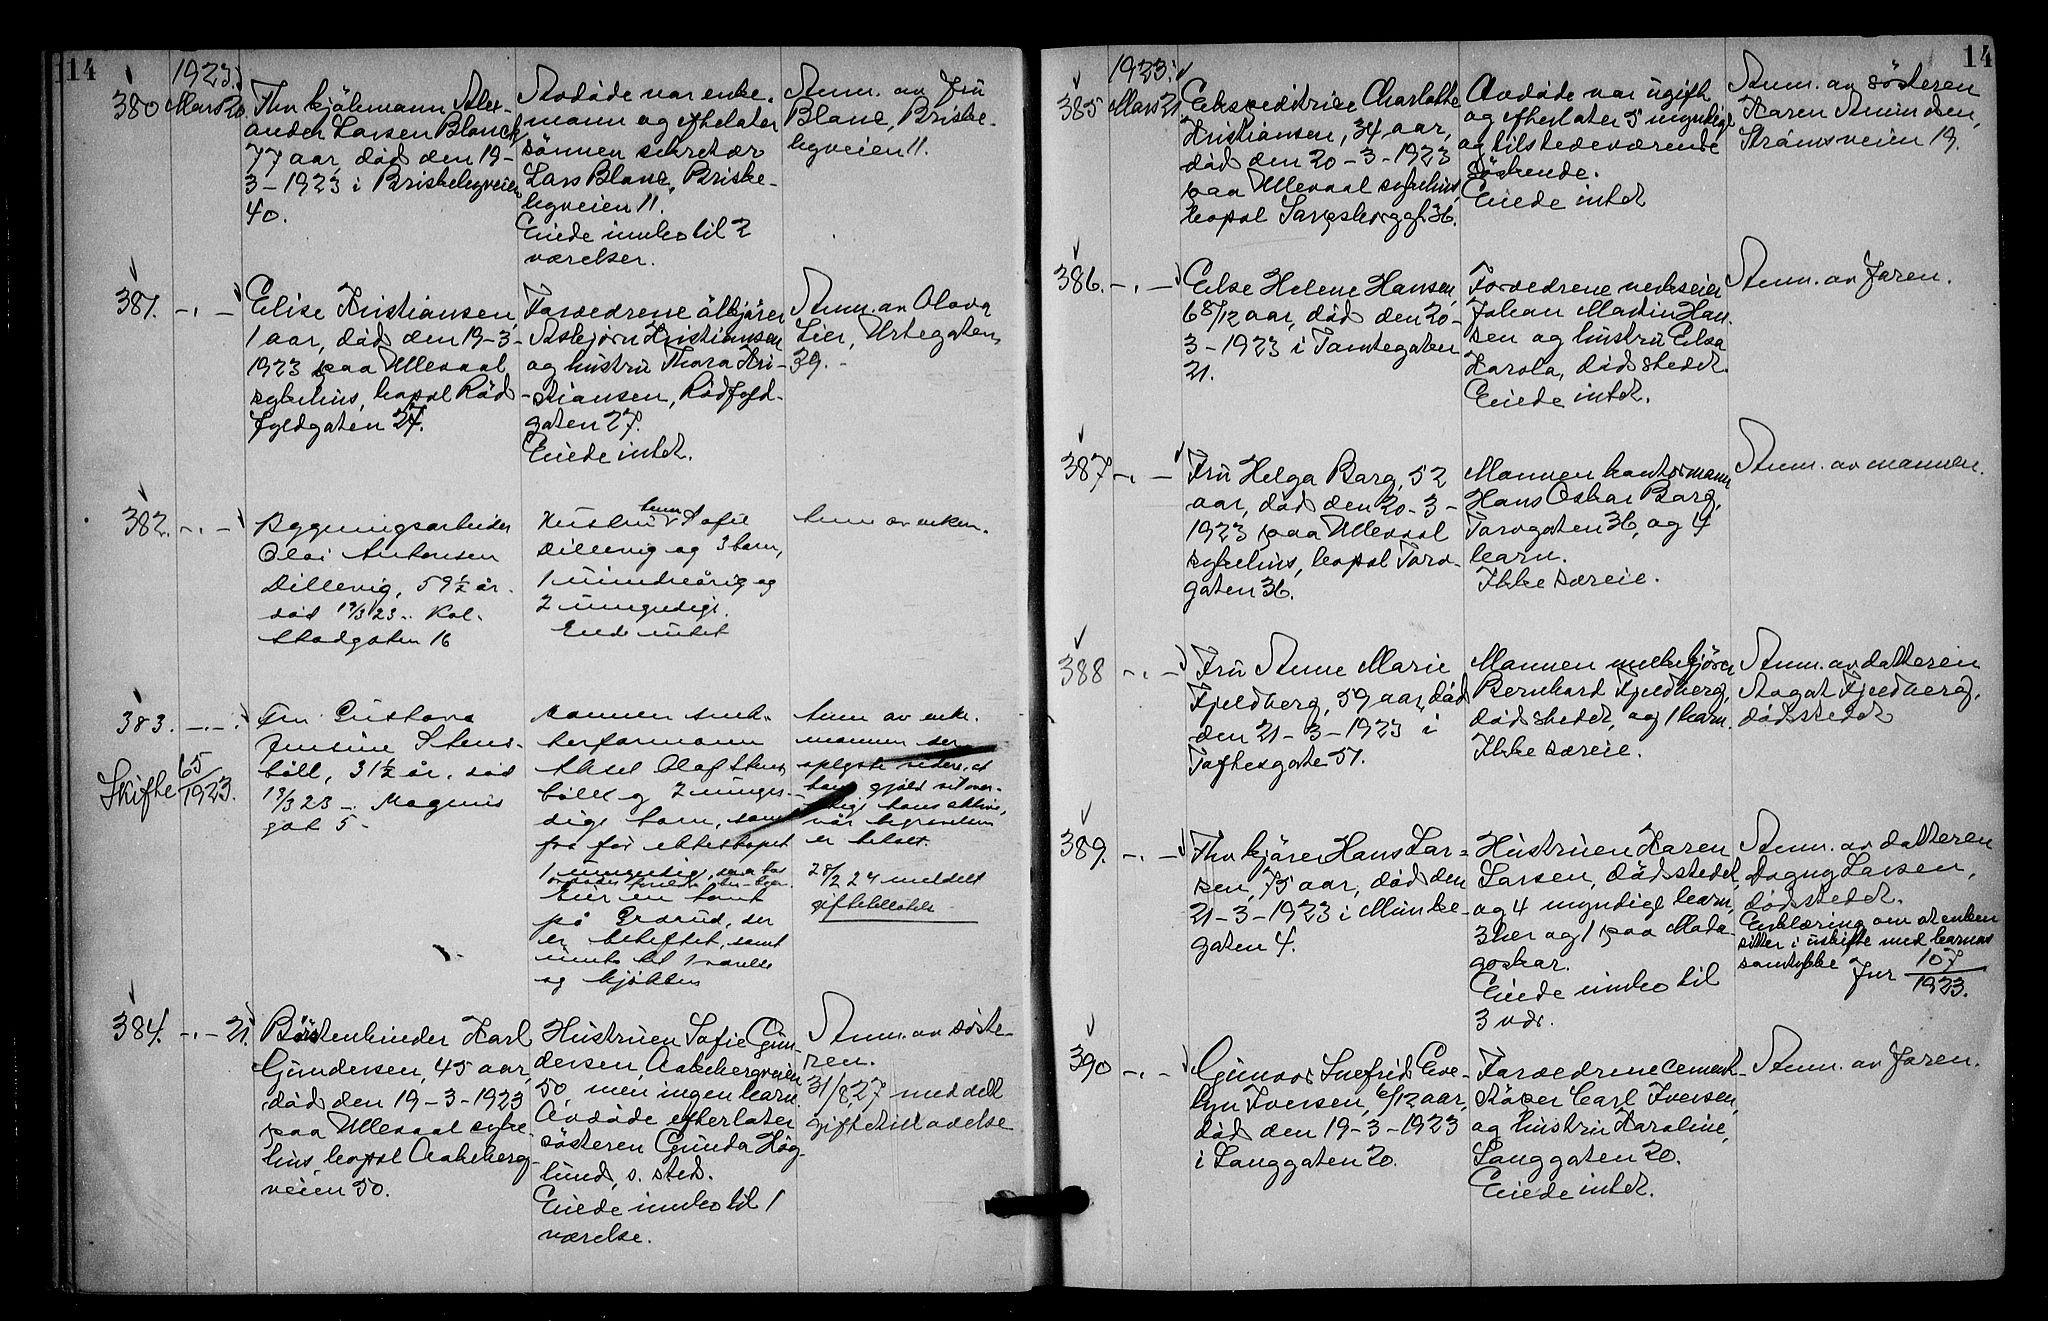 14
1923.
380
Mars 20.
Fhv. kjøbmann Alex-
ander Larsen Blanck,
77 aar, død den 19-
3-1923 i Briskebyveien
40.
Avdøde var enke-
mann og efterlater
sønnen sekretær
Lars Blanc, Briske-
byveien 11.
Eiede innbo til 2
værelser.
Anm. av Fru
Blanc, Briske-
byveien 11.
381. -.-
Elise Kristiansen,
1 aar, død den 19-3-
1923 paa Ullevaal
sykehus, bopæl Rød-
fyldgaten 27.
Forældrene ølkjører
Asbjørn Kristiansen
og hustru Thora Kri-
stiansen, Rødfyld-
gaten 27.
Eiede intet.
Anm. av Olava
Lier, Urtegaten
39.
382. -.-
Bygningsarbeider
Olai Antonsen
Dillevig, 59 1/2 år.
død 19/3 23 .. Kol-
stadgaten 16
Hustru Sofie
Dillevig og 3 barn,
1 mindreårig og
2 umyndige.
Eiede intet
Anm av enken.
383. -.-
Skifte 65/1923.
Fru Gustava
Jensine Stens-
bøll, 31 1/2 år. død
19/3 23 - Magnus
gat 5 -
Mannen
formann
Aksel Olaf Stens-
bøll og 2 umyn-
dige barn, samt
fra før ekteskapet
1 umyndig,
Eier en tomt
på Grorud, der
er beheftet, samt
innbo til 1 værelse
og kjøkken
Anm av enke-
mannen der
oplyste videre, at
hans gjæld vil over-
stige hans aktiva,
når begravelsen
er betalt.
28/2 24 meldt
giftetilladelse
384. -.- 21.
Børstenbinder Karl
Gundersen, 45 aar,
død den 19-3-1923
paa Ullevaal syke-
hus, bopæl Aakeberg-
veien 50.
Hustruen Sofie Gun-
dersen, Aakebergveien
50, men ingen barn.
Avdøde efterlater
søsteren Gunda Høg-
lund, s. sted.
Eiede innbo til 1
værelse.
Anm. av søste-
ren.
31/8 27 meddelt
giftetilladelse
14
1923.
385
Mars 21
Ekspeditrice Charlotte
Kristiansen, 34 aar,
død den 20-3-1923
paa Ullevaal sykehus,
bopæl Sarpsborggt. 36.
Avdøde var ugift
og efterlater 5 myndige
og tilstedeværende
søskende.
Eiede intet
Anm. av søsteren
Karen Amundsen,
Strømsveien 19.
386. -.-
Else Helene Hansen,
6 8/12 aar, død den 20-
3-1923 i Tomtegaten
21.
Forældrene verkseier
Johan Martin Han-
sen og hustru Elsa
Karola, dødstedet.
Eiede intet.
Anm. av Faren.
387 -.-
Fru Helga Barg, 52
aar, død den 20-3-
1923 paa Ullevaal
sykehus, bopæl Torv-
gaten 36.
Mannen kontormann
Hans Oskar Barg,
Torvgaten 36, og 4
barn.
Ikke særeie.
Anm. av mannen.
388 -.-
Fru Anne Marie
Fjeldberg, 59 aar, død
den 21-3-1923 i
Toftesgate 51.
Mannen melkekjører
Bernhard Fjeldberg,
dødstedet, og 1 barn.
Ikke særeie.
Anm. av datteren
Aagot Fjeldberg,
dødstedet
389. -.-
Fhv. kjører Hans Lar-
sen, 75 aar, død den
21-3-1923 i Munke-
gaten 4.
Hustruen Karen
Larsen, dødstedet,
og 4 myndige barn,
3 her og 1 paa Mada-
gaskar.
Eiede innbo til
3 vær.
Anm. av datteren
Dagny Larsen,
dødstedet.
Erklæring om at enken
sitter i uskifte med barnas
samtykke Jnr 107/1923.
390 -.-
Gunvor Ingfrid Eve-
lyn Iversen, 6/12 aar,
død den 19-3-1923
i Langgaten 20.
Forældrene cement-
støper Carl Iversen,
og hustru Karoline,
Langgaten 20.
Eiede intet.
Anm. av Faren.